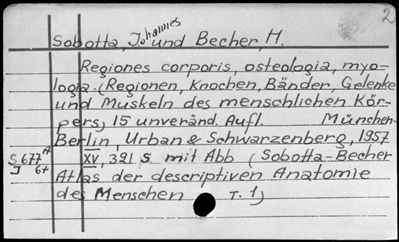 2
Sobotta, Johannes und Becher, H.
Regiones corporis, osteologia, myo-
logia. (Regionen, Knochen, Bänder, Gelenke
und Muskeln des menschlichen Kör-
pers) 15 unveränd. Aufl. München-
Berlin, Urban & Schwarzenberg, 1957
S 677 A XV, 391 S mit Abb (Sobotta-Becher
I 6+ Atlas der descriptiven Anatomie
des Menschen T. 1)